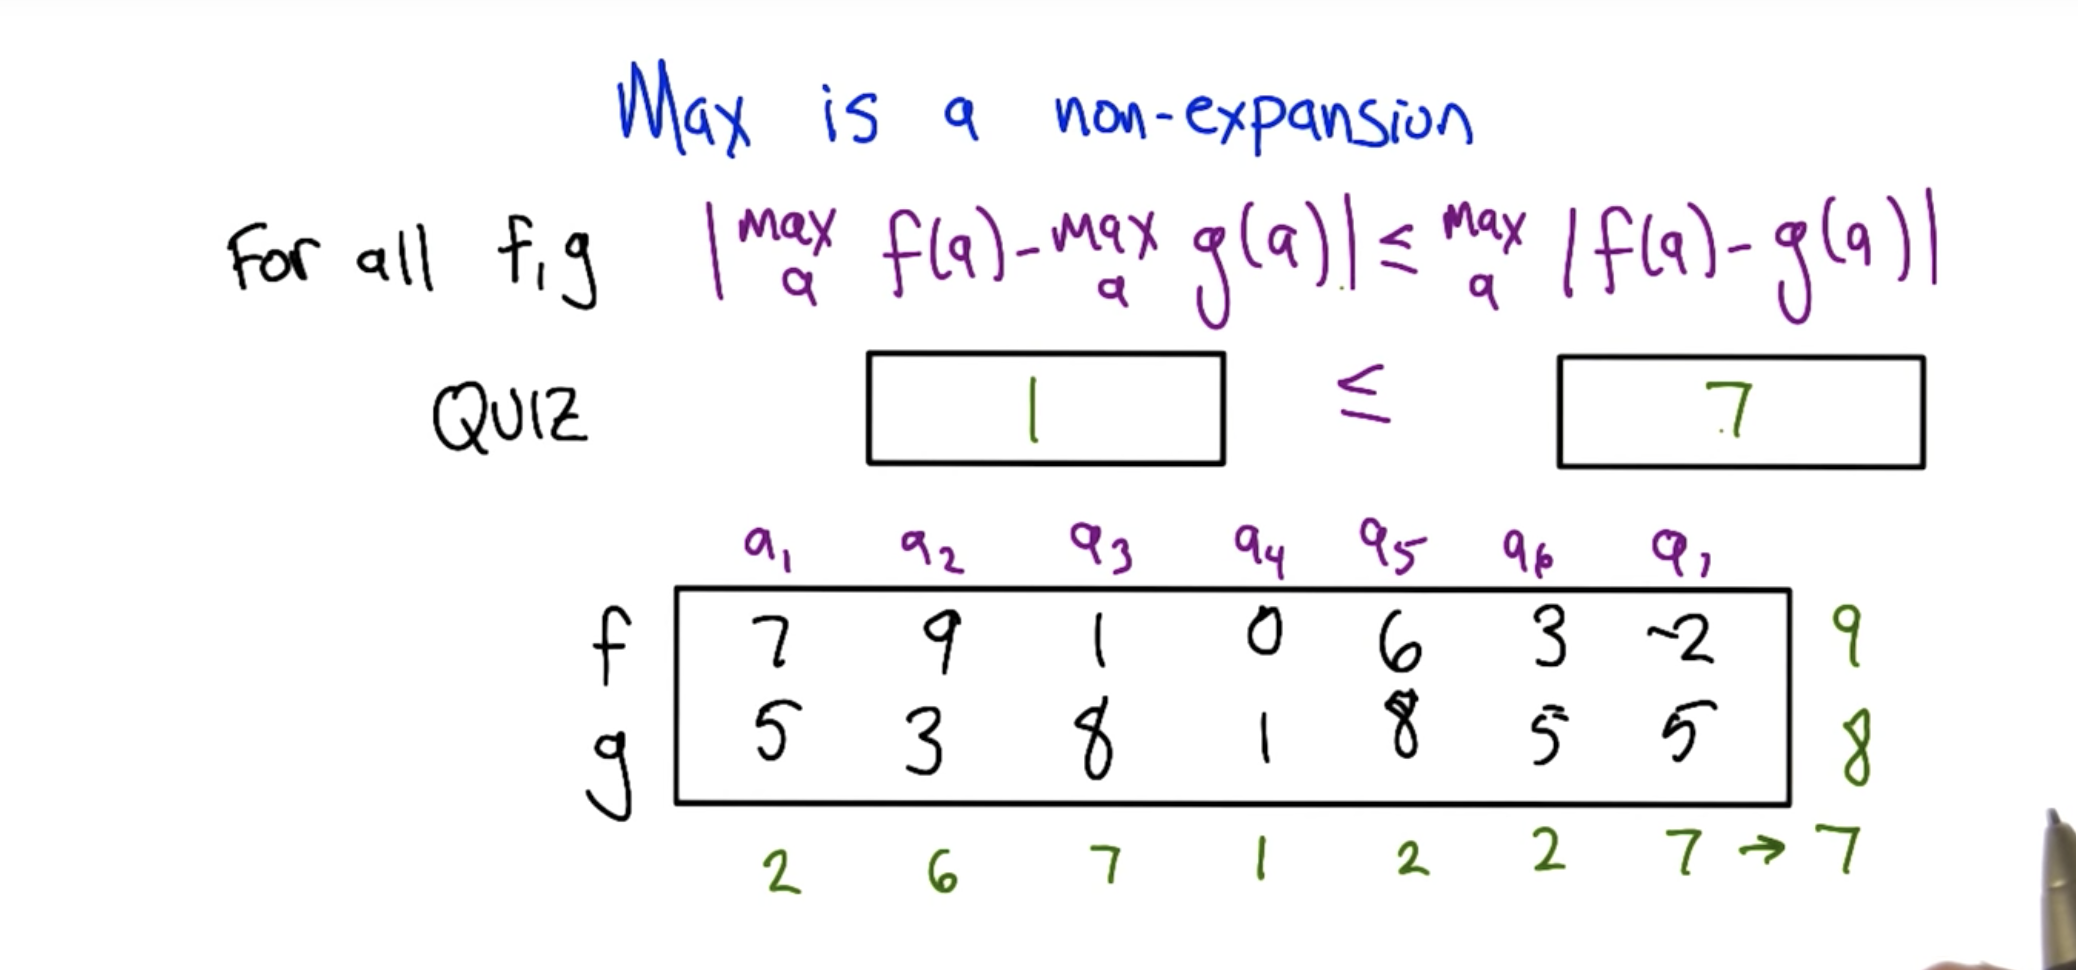 Max is a non-expansion
For all f, g |max a f(a) - max a g(a)| ≤ max a |f(a) - g(a)|
QUIZ 1 ≤ 7
a1 a2 a3 a4 a5 a6 a7
f 7 9 1 0 6 3 -2 9
g 5 3 8 1 8 5 5 8
2 6 7 1 2 2 7 → 7